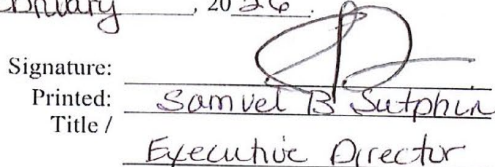 , 2026.
Signature:
Printed: Samuel B Sutphin
Title /
Executive Director